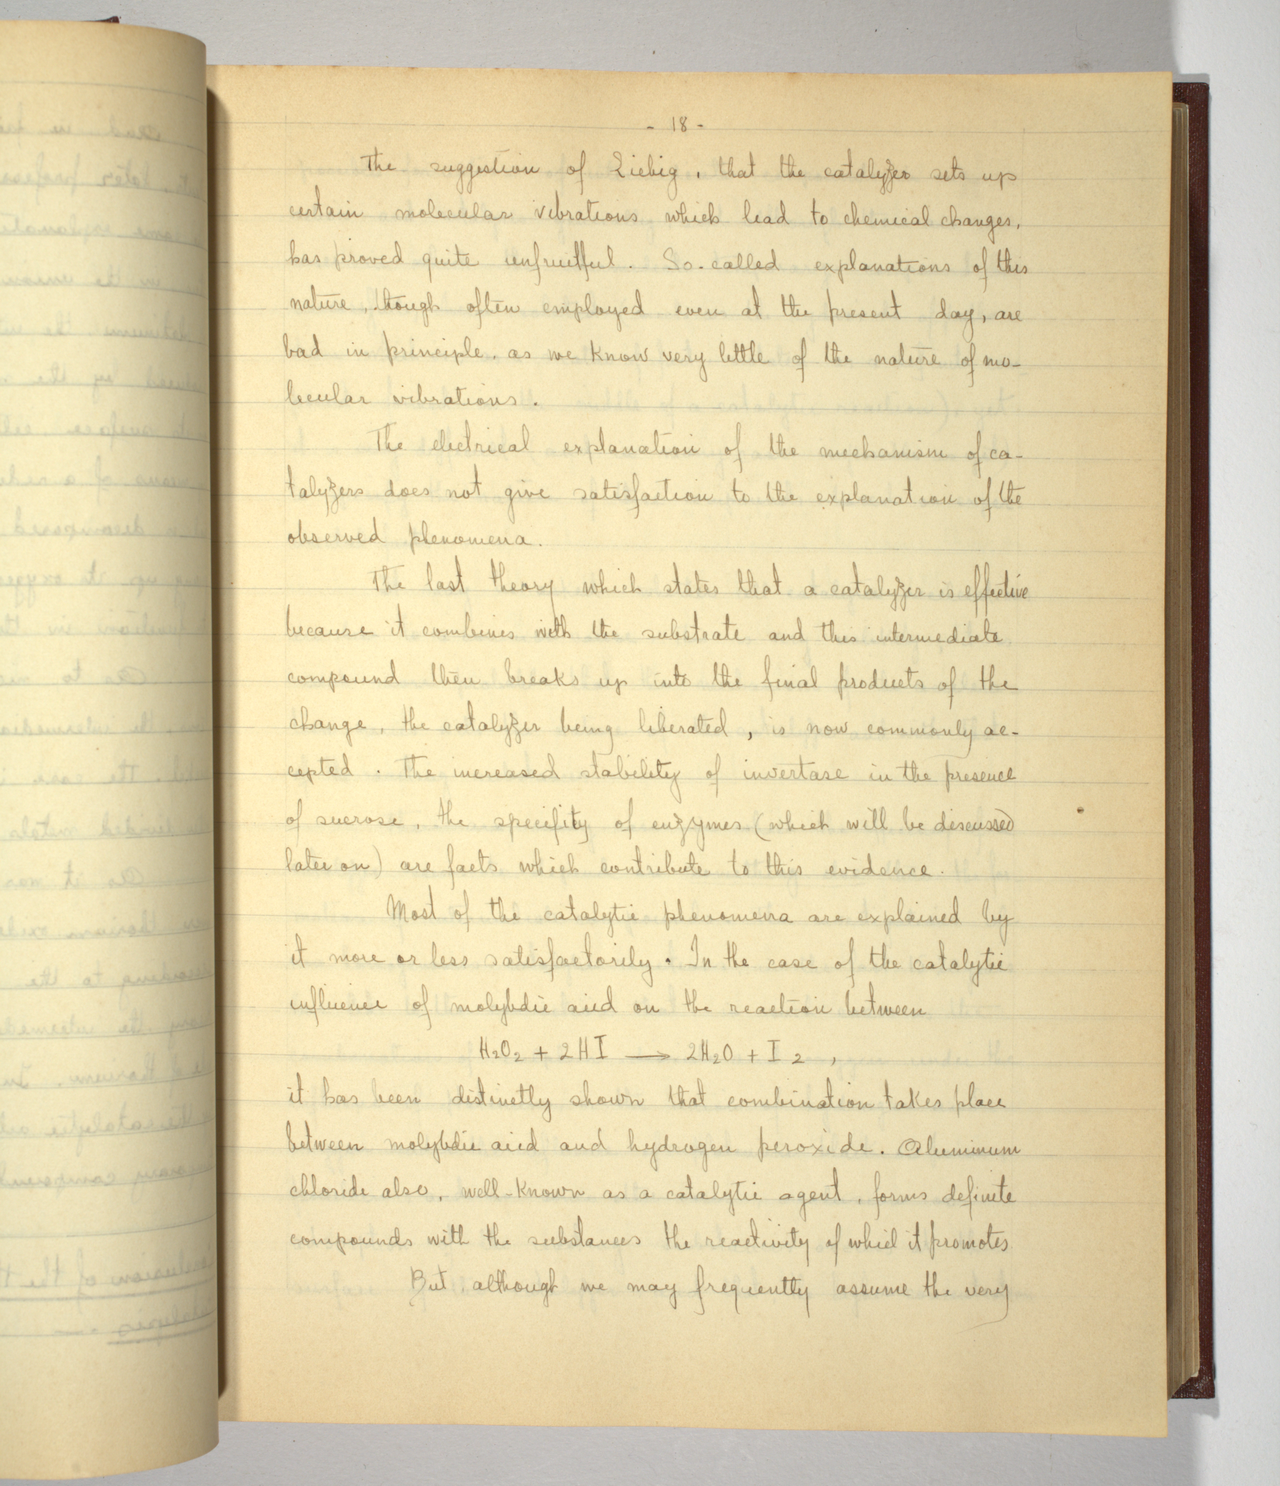 - 18 -
The suggestion of Liebig, that the catalyzer sets up
certain molecular vibrations which lead to chemical changes,
has proved quite unfruitful. So-called explanations of this
nature, though often employed even at the present day, are
bad in principle, as we know very little of the nature of mo-
lecular vibrations.
The electrical explanation of the mechanism of ca-
talyzers does not give satisfaction to the explanation of the
observed phenomena.
The last theory which states that a catalyzer is effective
because it combines with the substrate and this intermediate
compound then breaks up into the final products of the
change, the catalyzer being liberated, is now commonly ac-
cepted. The increased stability of invertase in the presence
of sucrose, the specifity of enzymes (which will be discussed
later on) are facts which contribute to this evidence.
Most of the catalytic phenomena are explained by
it more or less satisfactorily. In the case of the catalytic
influence of molybdic acid on the reaction between
H₂O₂ + 2HI ⟶ 2H₂O + I₂,
it has been distinctly shown that combination takes place
between molybdic acid and hydrogen peroxide. Aluminum
chloride also, well-known as a catalytic agent, forms definite
compounds with the substances the reactivity of which it promotes
But, although we may frequently assume the very